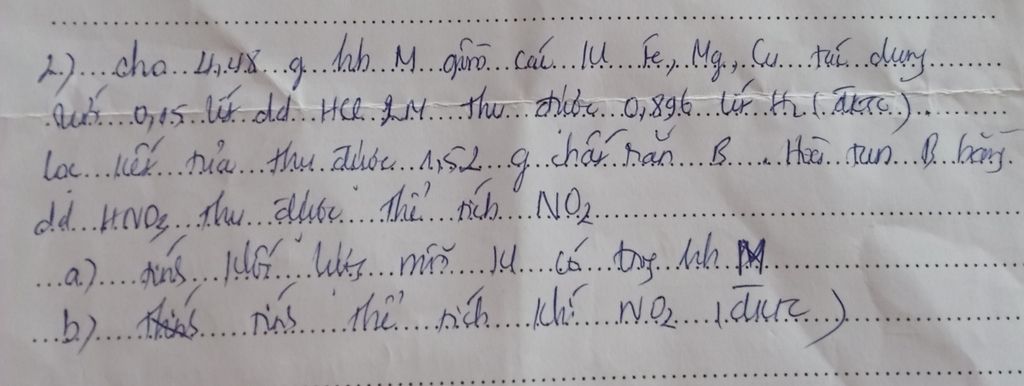 2.) cho 4,48 g hh M gồm các KL Fe, Mg, Cu tác dụng
với 0,15 lít dd HCl 2M thu được 0,896 lít H2 (đktc)
lọc kết tủa thu được 1,52 g chất rắn B. Hoà tan B bằng
dd HNO3 thu được thể tích NO2
a) tính khối lượng mỗi KL có trog hh M
b) tính thể tích khí NO2 (đktc)